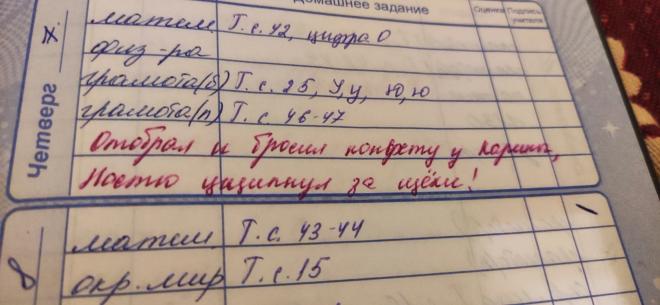 Домашнее задание Оценка Подпись учителя
Четверг 7.
матем. Т. с. 42, цифра 0
физ-ра
грамота(б) Т. с. 25, У,у, Ю,ю
грамота(п) Т. с. 46-47
Отобрал и бросил конфету у Карины,
Настю ущипнул за щёки!
8
матем. Т. с. 43-44
окр. мир Т. с. 15